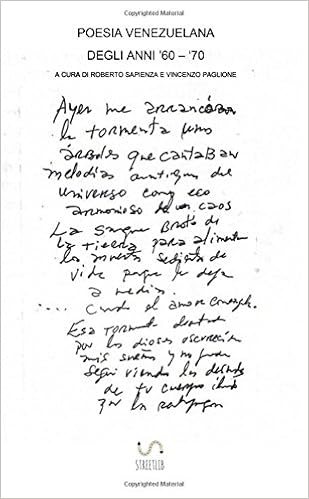 POESIA VENEZUELANA
DEGLI ANNI '60 – '70
A CURA DI ROBERTO SAPIENZA E VINCENZO PAGLIONE
Ayer me arrancaron
la tormenta unos
árboles que cantaban
melodías antiguas del
universo como eco
armonioso de un caos
La sangre brota de
la tierra para alimentar
los muertos sedientos de
vida porque le deja
a medias.
.... Cuando el amor
Esa tormenta
por los dioses oscurecía
mis sueños y no pude
seguir viendo los
de tu cuerpo
por la
STREETLIB